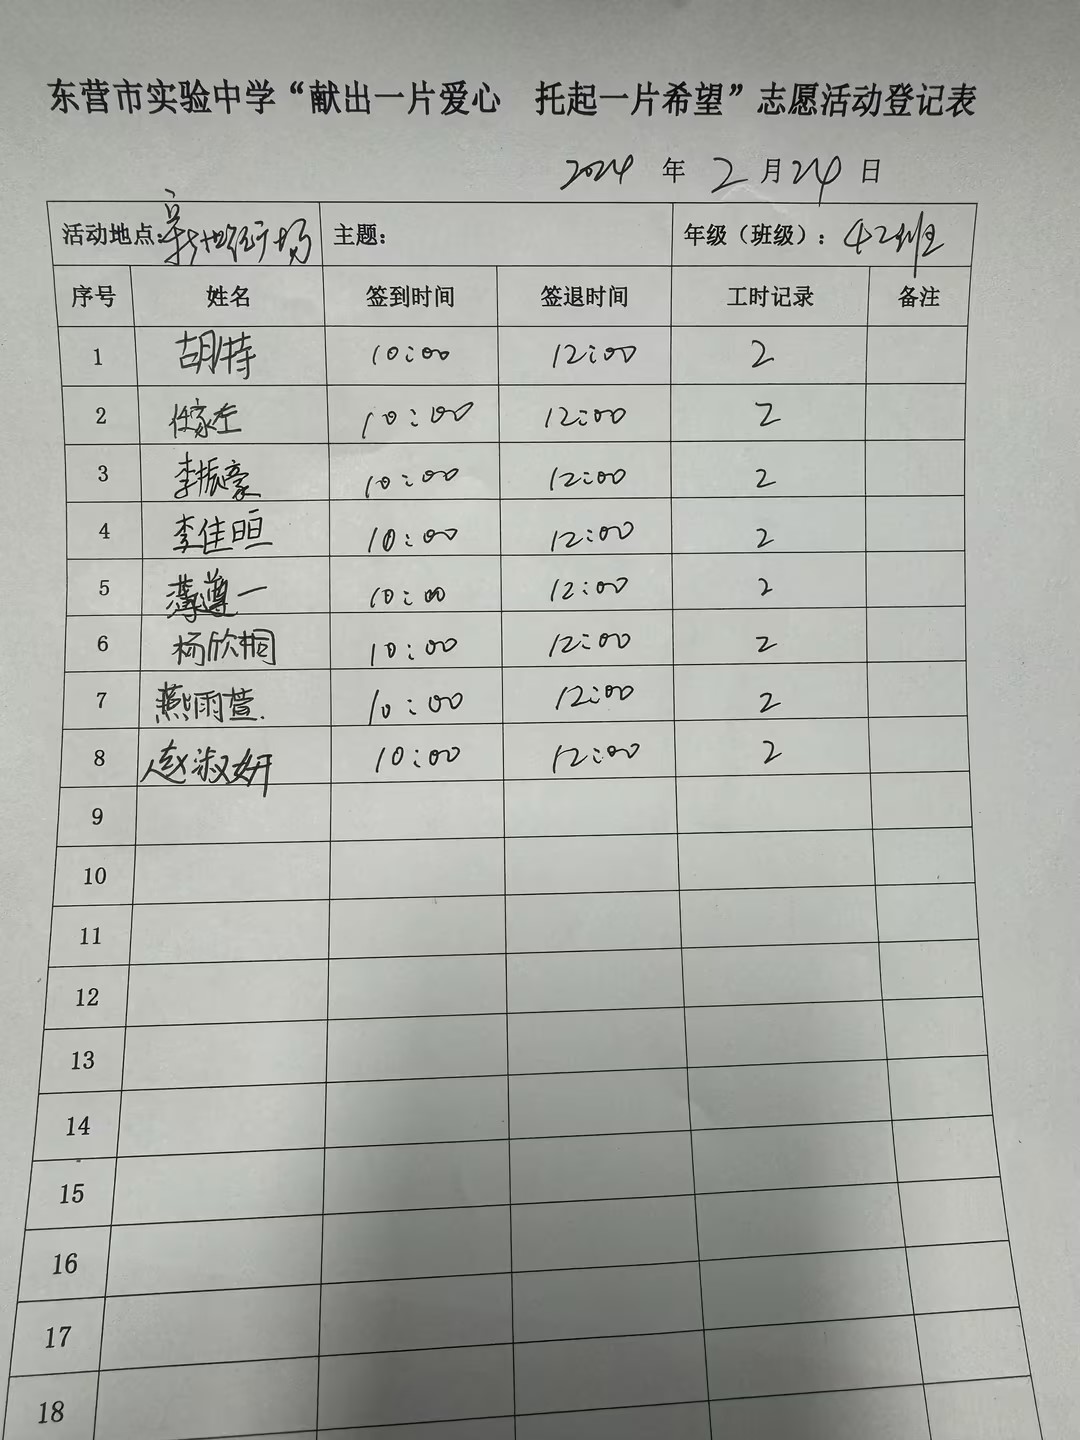 东营市实验中学“献出一片爱心 托起一片希望”志愿活动登记表
2024 年 2 月 24 日
活动地点： 主题： 年级（班级）：42班
序号 姓名 签到时间 签退时间 工时记录 备注
1 胡特 10:00 12:00 2
2 任家左 10:00 12:00 2
3 李振豪 10:00 12:00 2
4 李佳晅 10:00 12:00 2
5 薄遵一 10:00 12:00 2
6 杨欣桐 10:00 12:00 2
7 燕雨萱. 10:00 12:00 2
8 赵淑妍 10:00 12:00 2
9
10
11
12
13
14
15
16
17
18